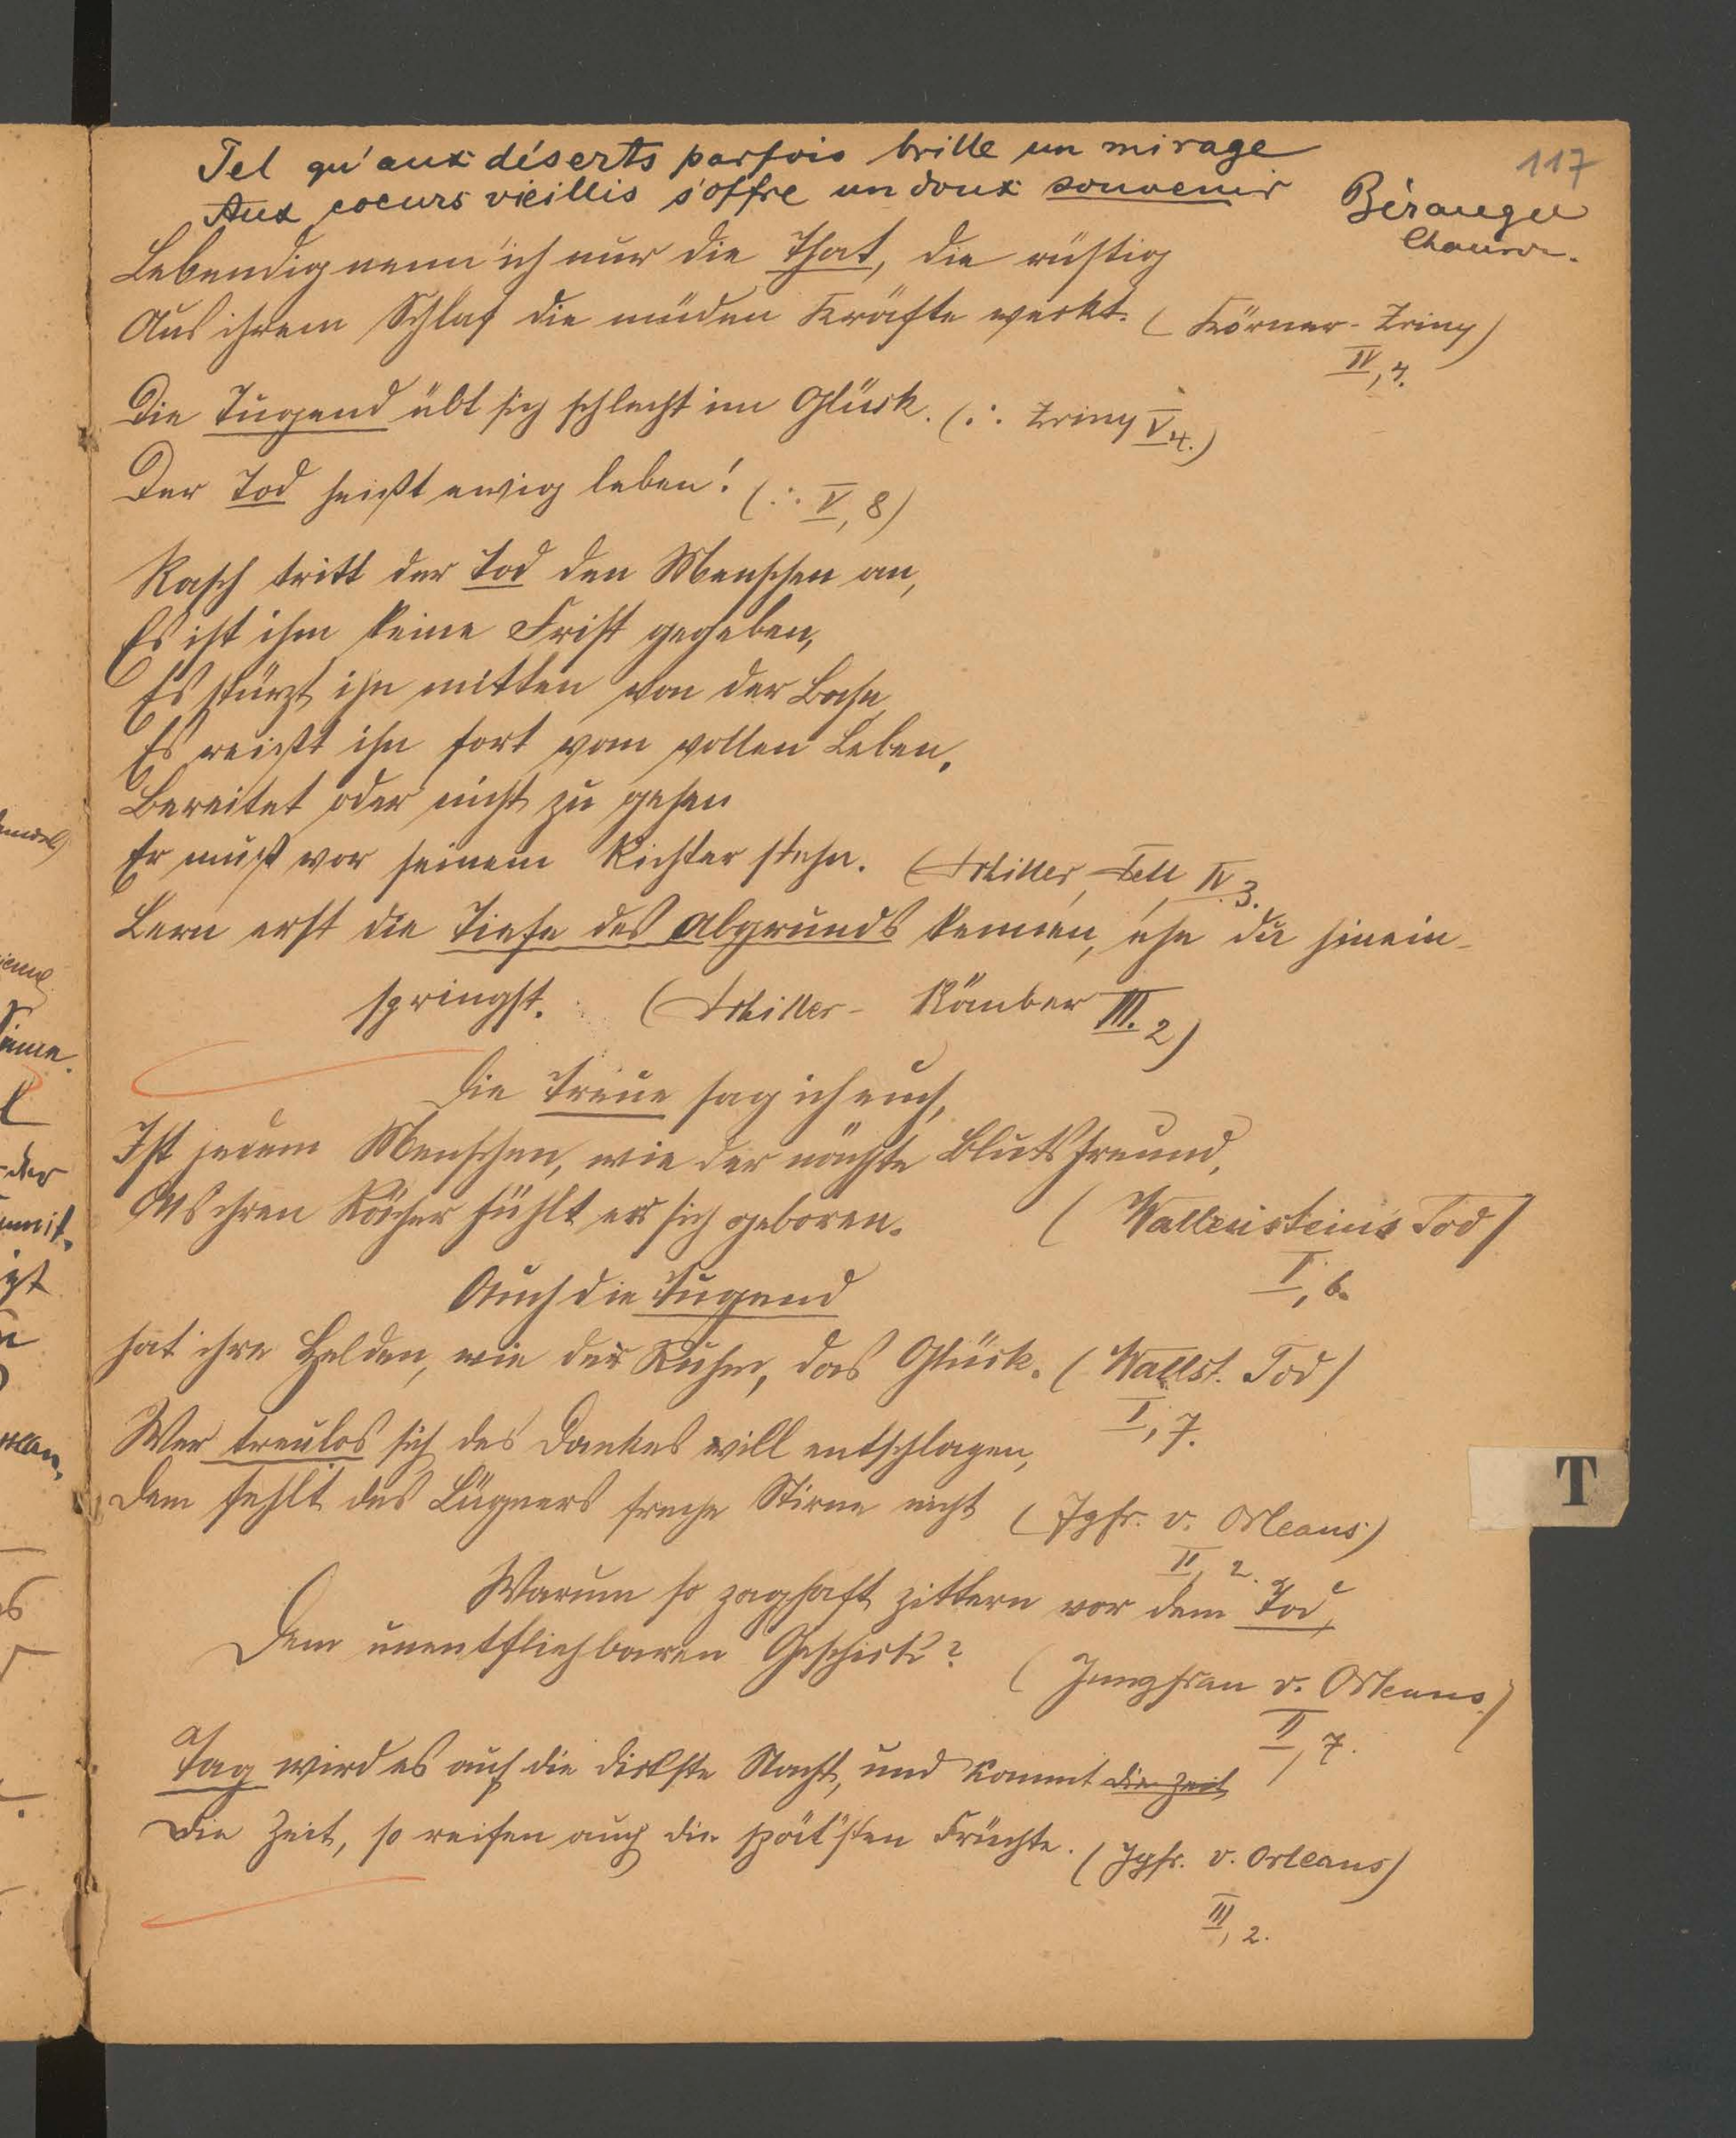 117
Tel qu'aux déserts parfois brille un mirage
Aux coeurs vieillis s'offre un doux souvenir
Béranger
Lebendig nenn' ich nur die That, die rüstig
Aus ihrem Schlaf die müden Kräfte weckt. (Körner-Zriny)
IV, 4.
Die Tugend übt sich schlecht im Glück. (:. Zriny V 4.)
Der Tod heißt ewig leben! (:. V, 8)
Rasch tritt der Tod den Menschen an,
Es ist ihm keine Frist gegeben,
Es stürzt ihn mitten von der Bahn,
Es reißt ihn fort vom vollen Leben.
Bereitet oder nicht zu gehen
Er muß vor seinem Richter stehn. (Schiller, Tell IV. 3.
Lern erst die Tiefe des Abgrunds kennen, ehe du hinein-
springst. (Schiller- Räuber III. 2)
Die Treue sag ich euch,
Ist jedem Menschen, wie der nächste Blutsfreund,
Als ihren Rächer fühlt er sich geboren. (Wallensteins Tod)
I, 6.
Auch die Tugend
hat ihre Helden, wie der Ruhm, das Glück. (Wallst. Tod)
I, 7.
Wer treulos sich des Dankes will entschlagen,
Dem fehlt des Lügners freche Stirne nicht (Jgfr. v. Orleans)
II, 2.
Warum so zaghaft zittern vor dem Tod,
Dem unentfliehbaren Geschick?
(Jungfrau v. Orleans.)
II, 7.
Tag wird es auf die dickste Nacht, und kommt die Zeit
Die Zeit, so reifen auch die spät'sten Früchte. (Jgfr. v. Orleans)
III, 2.
T